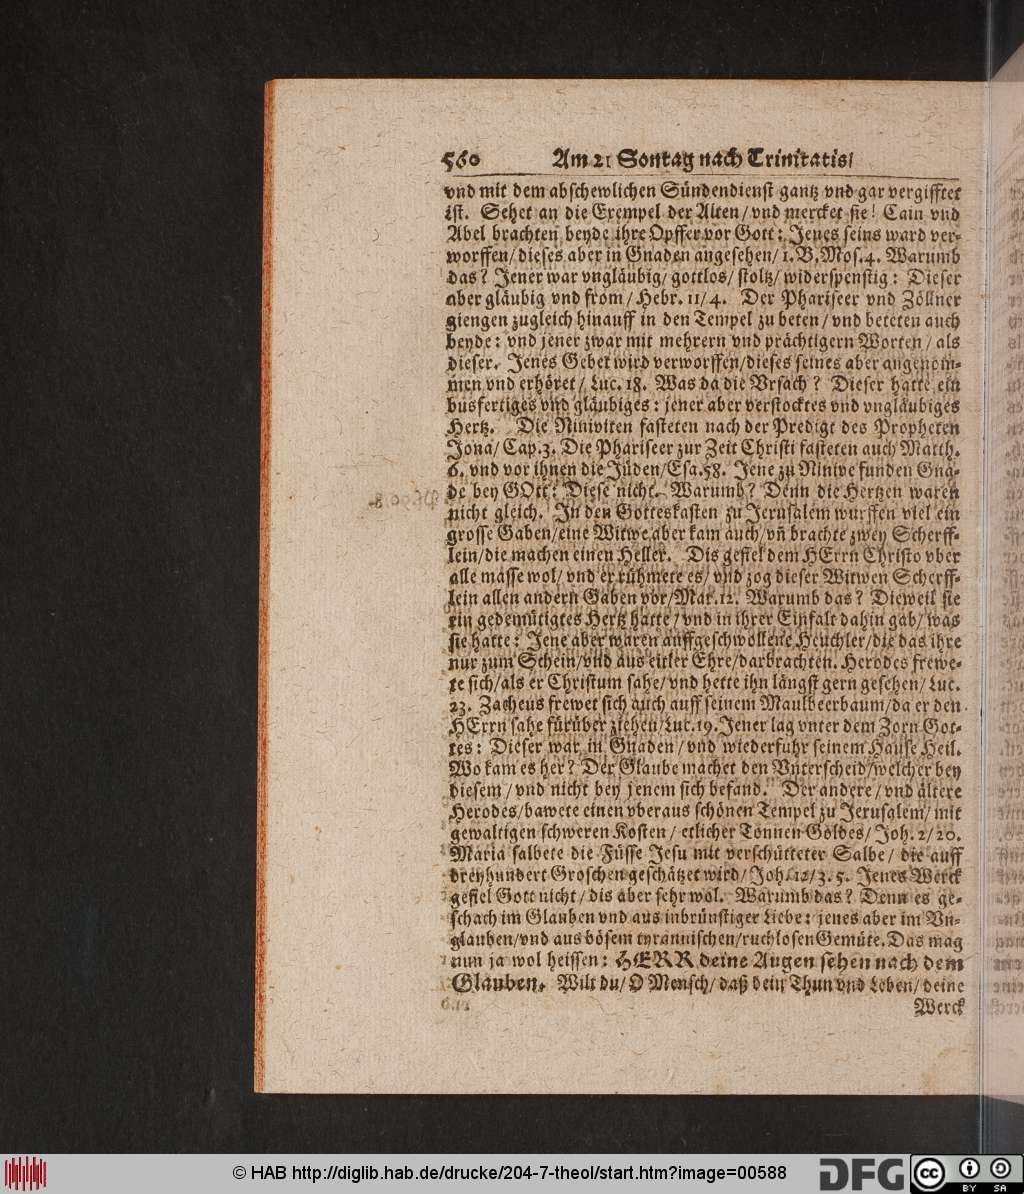 560 Am 21 Sontag nach Trinitatis/
vnd mit dem abschewlichen Sündendienst gantz vnd gar vergifftet
ist. Sehet an die Exempel der Alten/ vnd mercket sie! Cain vnd
Abel brachten beyde ihre Opffer vor Gott: Jenes seins ward ver-
worffen/ dieses aber in Gnaden angesehen/ 1. B. Mos. 4. Warumb
das? Jener war vngläubig/ gottlos/ stoltz/ widerspenstig: Dieser
aber gläubig vnd from/ Hebr. 11/4. Der Phariseer vnd Zöllner
giengen zugleich hinauff in den Tempel zu beten/ vnd beteten auch
beyde: vnd jener zwar mit mehrern vnd prächtigern Worten/ als
dieser. Jenes Gebet wird verworffen/ dieses seines aber angenom-
men vnd erhöret/ Luc. 18. Was da die Vrsach? Dieser hatte ein
busfertiges vnd gläubiges: jener aber verstocktes vnd vngläubiges
Hertz. Die Niniviten fasteten nach der Predigt des Propheten
Jona/ Cap. 3. Die Phariseer zur Zeit Christi fasteten auch Matth.
6. vnd vor ihnen die Jüden/ Esa. 58. Jene zu Ninive funden Gna-
de bey GOtt: Diese nicht. Warumb? Denn die Hertzen waren
nicht gleich. In den Gotteskasten zu Jerusalem wurffen viel ein
grosse Gaben/ eine Witwe aber kam auch/ vñ brachte zwey Scherff-
lein/ die machen einen Heller. Dis gefiel dem HErrn Christo vber
alle masse wol/ vnd er rühmete es/ vnd zog dieser Witwen Scherff-
lein allen andern Gaben vor/ Mar. 12. Warumb das? Dieweil sie
ein gedemütigtes Hertz hatte/ vnd in ihrer Einfalt dahin gab/ was
sie hatte: Jene aber waren auffgeschwollene Heuchler/ die das ihre
nur zum Schein/ vnd aus eitler Ehre/ darbrachten. Herodes frewe-
te sich/ als er Christum sahe/ vnd hette ihn längst gern gesehen/ Luc.
23. Zacheus frewet sich auch auff seinem Maulbeerbaum/ da er den
HErrn sahe fürüber ziehen/ Luc. 19. Jener lag vnter dem Zorn Got-
tes: Dieser war in Gnaden/ vnd wiederfuhr seinem Hause Heil.
Wo kam es her? Der Glaube machet den Vnterscheid/ welcher bey
diesem/ vnd nicht bey jenem sich befand. Der andere/ vnd ältere
Herodes/ bawete einen vberaus schönen Tempel zu Jerusalem/ mit
gewaltigen schweren Kosten/ etlicher Tonnen Goldes/ Joh. 2/20.
Maria salbete die Füsse Jesu mit verschütteter Salbe/ die auff
dreyhundert Groschen geschätzet wird/ Joh. 12/3. 5. Jenes Werck
gefiel Gott nicht/ dis aber sehr wol. Warumb das? Denn es ge-
schach im Glauben vnd aus inbrünstiger Liebe: jenes aber im Vn-
glauben/ vnd aus bösem tyrannischen/ ruchlosen Gemüte. Das mag
nun ja wol heissen: HERR deine Augen sehen nach dem
Glauben. Wilt du/ O Mensch/ daß dein Thun vnd Leben/ deine
Werck
© HAB http://diglib.hab.de/drucke/204-7-theol/start.htm?image=00588
DFG
cc BY SA